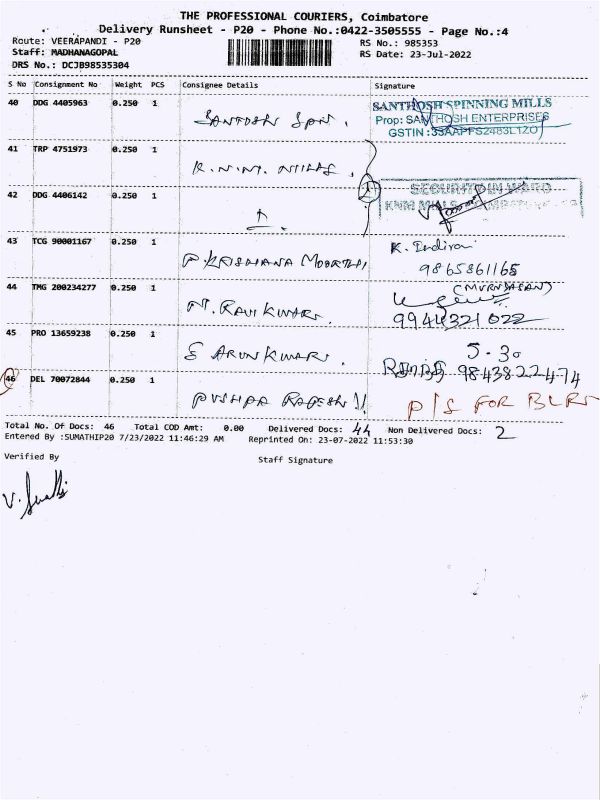 THE PROFESSIONAL COURIERS, Coimbatore
Delivery Runsheet - P20 - Phone No.:0422-3505555 - Page No.:4
Route: VEERAPANDI - P20
RS No.: 985353
Staff: MADHANAGOPAL
RS Date: 23-Jul-2022
DRS No.: DCJB98535304
S No Consignment No Weight PCS Consignee Details Signature
40 DDG 4405963 0.250 1
SANTOSH SPN.
SANTHOSH SPINNING MILLS
Prop: SANTHOSH ENTERPRISES
GSTIN :33AAPFS2483L1ZO
41 TRP 4751973 0.250 1
K.N.M. MILLS.
42 DDG 4406142 0.250 1
SECURITY IN WARD
KNM MILLS
43 TCG 90001167 0.250 1
P. KRISHANA MOORTHI
K. Indirani
9865861165
44 TMG 200234277 0.250 1
M. RAVI KUMAR.
(MURUGASAN)
9944321022
45 PRO 13659238 0.250 1
S ARUN KUMAR.
5.30
9843822474
46 DEL 70072844 0.250 1
PUSHPA RAJESH
P/S FOR BLR
Total No. Of Docs: 46 Total COD Amt: 0.00 Delivered Docs: 44 Non Delivered Docs: 2
Entered By :SUMATHIP20 7/23/2022 11:46:29 AM Reprinted On: 23-07-2022 11:53:30
Verified By
Staff Signature